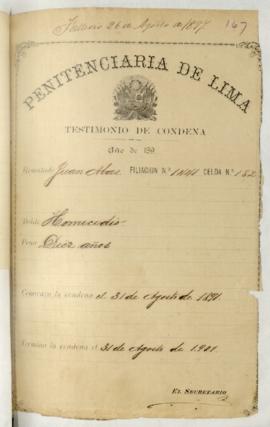 Falleció 26 de Agosto de 1897
167
PENITENCIARIA DE LIMA
TESTIMONIO DE CONDENA
Año de 189
Rematado Juan FILIACION N.º 1441 CELDA N.º 152
Delito Homicidio
Pena Diez años
Comenzó la condena el 31 de Agosto de 1891.
Termina la condena el 31 de Agosto de 1901.
EL SECRETARIO